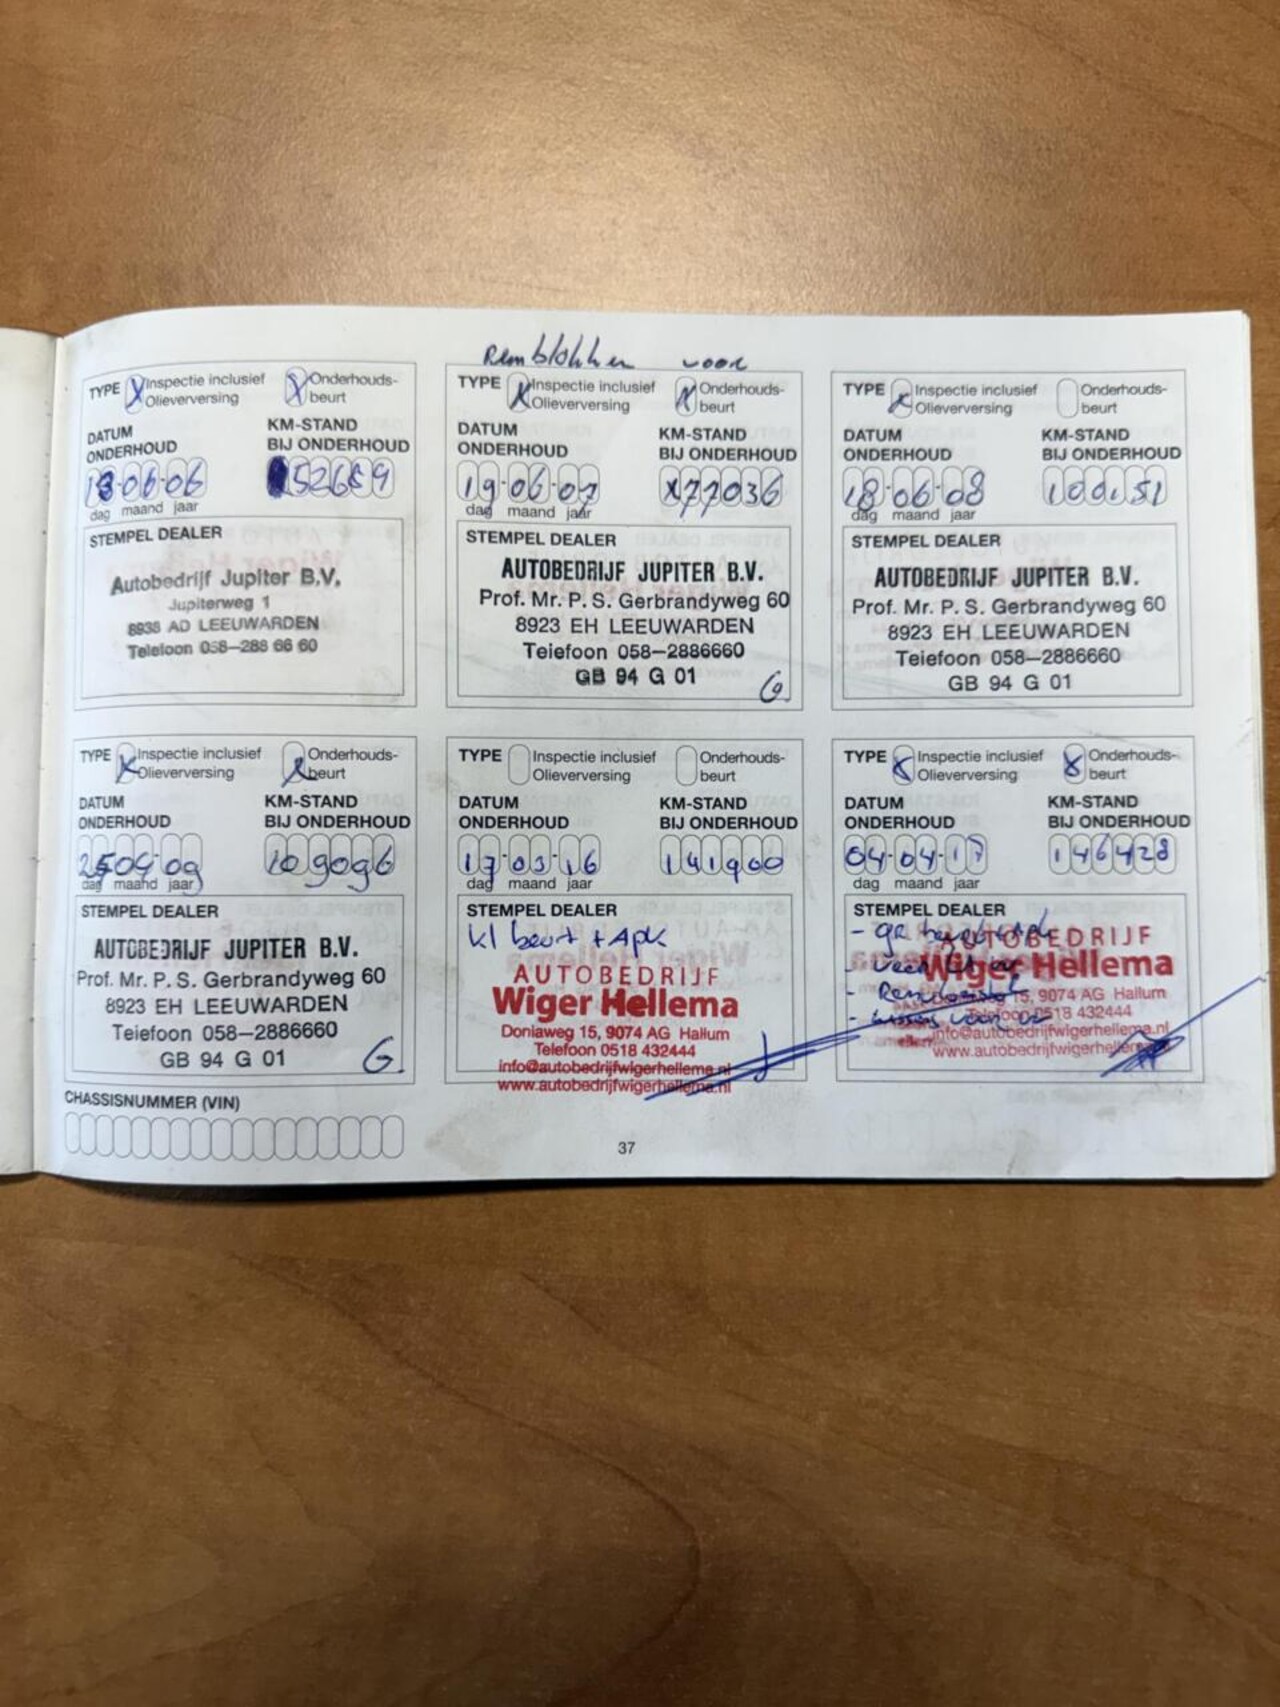 Remblokken voor
TYPE X Inspectie inclusief Olieverversing X Onderhouds-beurt
DATUM ONDERHOUD
KM-STAND BIJ ONDERHOUD
-06-06
dag maand jaar
STEMPEL DEALER
Autobedrijf Jupiter B.V.
Jupiterweg 1
8938 AD LEEUWARDEN
Telefoon 058-288 66 60
TYPE X Inspectie inclusief Olieverversing X Onderhouds-beurt
DATUM ONDERHOUD
KM-STAND BIJ ONDERHOUD
19-06-07 X77036
dag maand jaar
STEMPEL DEALER
AUTOBEDRIJF JUPITER B.V.
Prof. Mr. P. S. Gerbrandyweg 60
8923 EH LEEUWARDEN
Telefoon 058-2886660
GB 94 G 01
G.
TYPE X Inspectie inclusief Olieverversing Onderhouds-beurt
DATUM ONDERHOUD
KM-STAND BIJ ONDERHOUD
18-06-08
dag maand jaar
STEMPEL DEALER
AUTOBEDRIJF JUPITER B.V.
Prof. Mr. P. S. Gerbrandyweg 60
8923 EH LEEUWARDEN
Telefoon 058-2886660
GB 94 G 01
TYPE X Inspectie inclusief Olieverversing X Onderhouds-beurt
DATUM ONDERHOUD
KM-STAND BIJ ONDERHOUD
109096
dag maand jaar
STEMPEL DEALER
AUTOBEDRIJF JUPITER B.V.
Prof. Mr. P. S. Gerbrandyweg 60
8923 EH LEEUWARDEN
Telefoon 058-2886660
GB 94 G 01
G.
TYPE Inspectie inclusief Olieverversing Onderhouds-beurt
DATUM ONDERHOUD
KM-STAND BIJ ONDERHOUD
17-03-16 141900
dag maand jaar
STEMPEL DEALER
kl beurt + Apk
AUTOBEDRIJF
Wiger Hellema
Doniaweg 15, 9074 AG Hallum
Telefoon 0518 432444
info@autobedrijfwigerhellema.nl
www.autobedrijfwigerhellema.nl
TYPE X Inspectie inclusief Olieverversing X Onderhouds-beurt
DATUM ONDERHOUD
KM-STAND BIJ ONDERHOUD
04-04-17 146428
dag maand jaar
STEMPEL DEALER
- gr
AUTOBEDRIJF
Wiger Hellema
15, 9074 AG Hallum
Telefoon 0518 432444
info@autobedrijfwigerhellema.nl
www.autobedrijfwigerhellema.nl
CHASSISNUMMER (VIN)
37